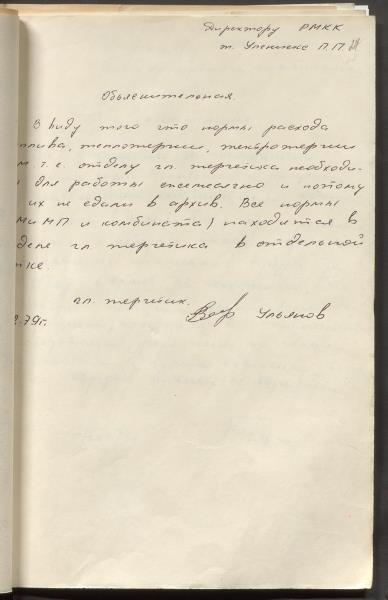 Директору РМКК
т. Улениекс П.П.
Объяснительная.
В виду того что нормы расхода
плива, теплоэнергии, электроэнергии
м.т.е. отделу гл. энергетика необходи-
для работы ежемесячно и потому
их не сдали в архив. Все нормы
ми МП и комбината) находится в
деле гл. энергетика в отдельной
пке.
гл. энергетик.
.79г.
Ульянов